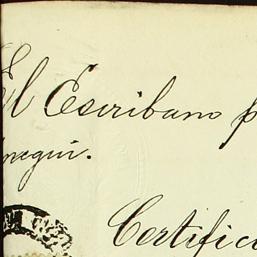 El Escribano p
negui.
Certific